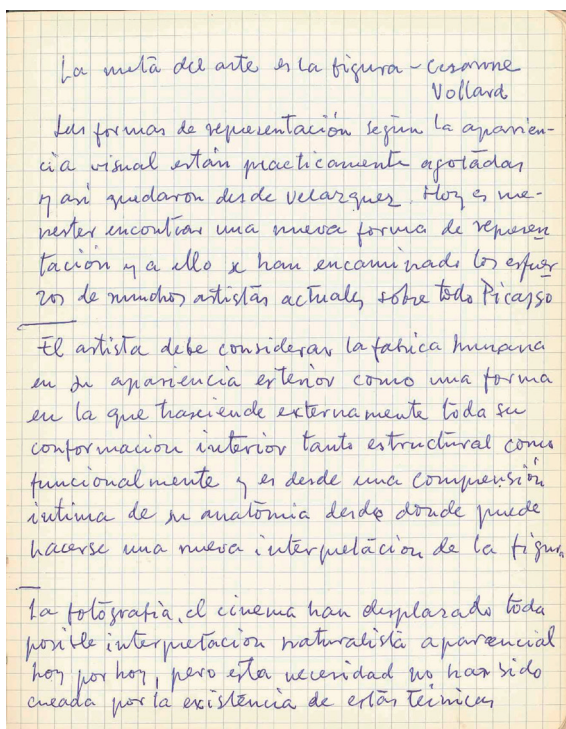 La meta del arte es la figura - Cesanne
Vollard
Las formas de representación según la aparien-
cia visual están practicamente agotadas
y asi quedaron desde Velazquez. Hoy es me-
nester encontrar una nueva forma de represen
tación y a ello se han encaminado los esfuer
zos de muchos artistas actuales sobre todo Picasso
El artista debe considerar la fabrica humana
en su apariencia exterior como una forma
en la que trasciende externamente toda su
conformacion interior tanto estructural como
funcionalmente y es desde una comprensión
intima de su anatomia desde donde puede
hacerse una nueva interpretación de la figura
La fotografia, el cinema han desplazado toda
posible interpretacion naturalista aparencial
hoy por hoy, pero esta necesidad no han sido
creada por la existencia de estas técnicas